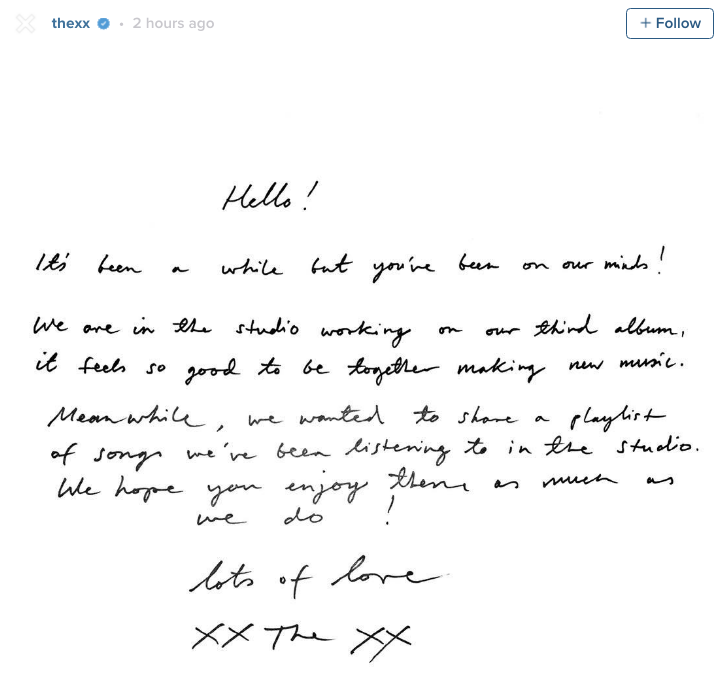 thexx · 2 hours ago + Follow
Hello!
It's been a while but you've been on our minds!
We are in the studio working on our third album,
it feels so good to be together making new music.
Meanwhile, we wanted to share a playlist
of songs we've been listening to in the studio.
We hope you enjoy them as much as
we do !
lots of love
xx The xx